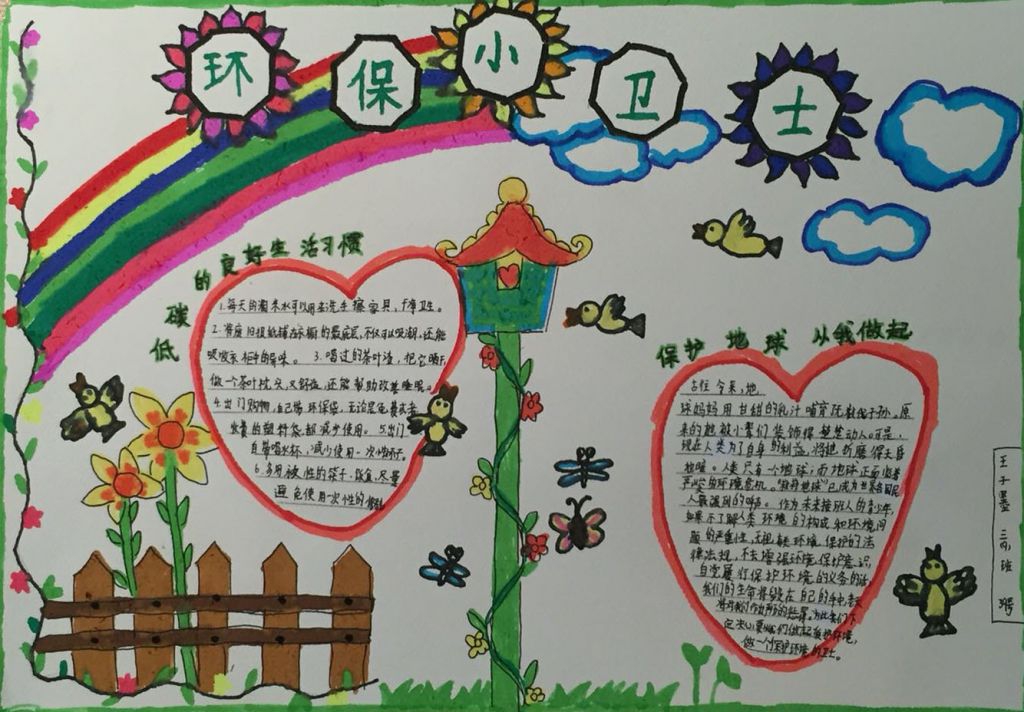 环保小卫士
低碳的良好生活习惯
1.每天的淘米水可以用来洗手擦家具,干净卫生。
2.将废旧报纸铺在衣橱的最底层,不仅可以吸潮,还能
吸收衣柜中的异味。 3.喝过的茶叶渣,把它晒干,
做一个茶叶枕头,又舒适,还能帮助改善睡眠。
4.出门购物,自己带环保袋,无论是免费或者
收费的塑料袋,都减少使用。 5.出门
自带喝水杯,减少使用一次性杯子。
6.多用 性的筷子、饭盒,尽量
避免使用一次性的
保护地球 从我做起
古往今来,地
球妈妈用甘甜的乳汁哺育了无数代子孙。原
来的她被小辈们装饰得楚楚动人。可是,
现在人类为了自身的利益,将她折磨得天昏
地暗。人类只有一个地球;而地球正面临着
严峻的环境危机。"救救地球"已成为世界各国民
人最强烈的呼声。 作为未来接班人的青少年,
如果不了解人类环境的构成和环境问
题的严重性,无视 环境保护的法
律法规,不去增强环境保护意识,
自觉履行保护环境的义务的话,
我们的生命将毁在自己的手中,老天
将对我们 的惩罚。为此我们下
定决心要从我们做起爱护环境,
做一个保护环境的卫士。
王子墨 三 班